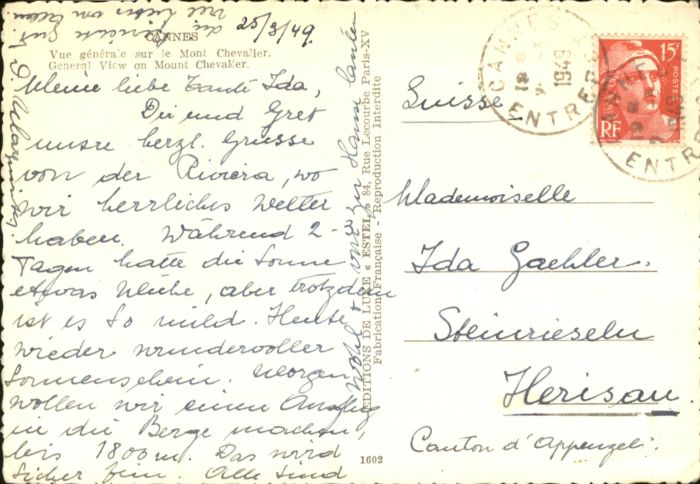 25/3/49.
CANNES
Vue générale sur le Mont Chevalier.
General View on Mount Chevalier.
Meine liebe Tante Ida,
Dir und Gret
unsre herzl. Grüsse
von der Riviera, wo
wir herrliches Wetter
haben. Während 2
Tagen hatte die Sonne
etwas Mühe, aber trotzdem
ist es so mild. Heute
wieder wundervoller
Sonnenschein. Morgen
wollen wir einen Ausflug
in die Berge machen,
bis 1800m. Das wird
sicher fein. Alle sind
wohl & von zu Hause
EDITIONS DE LUXE « ESTEL » 84, Rue Lecourbe Paris-XV
Fabrication Française - Reproduction Interdite
1602
CANNES
1949
ENTREP
15F
POSTES
RF
CANNE
ENTRE
Suisse
Mademoiselle
Ida Gaehler
Steinrieseln
Herisau
Canton d'Appenzel